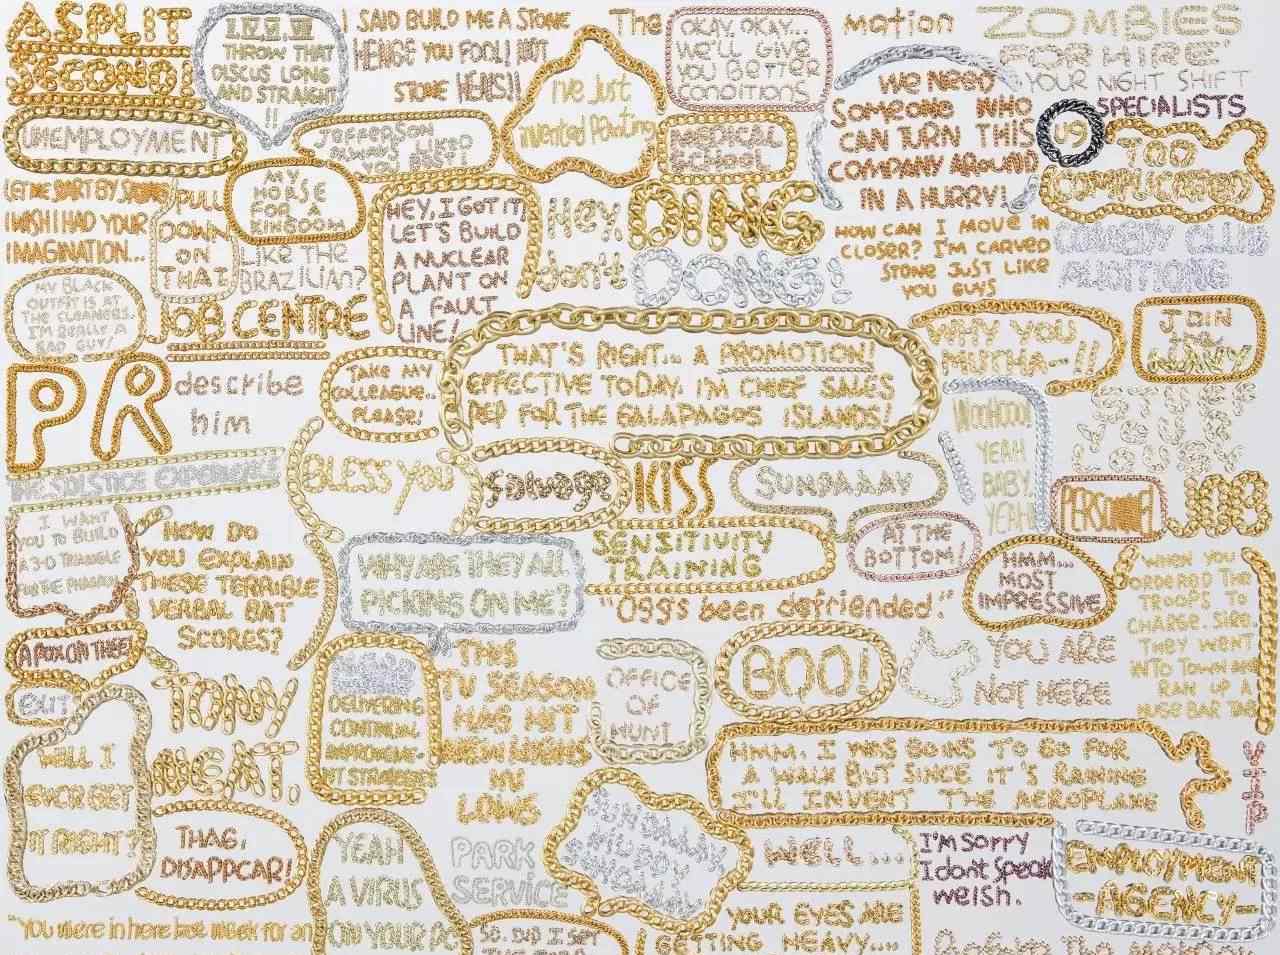 A SPLIT
SECOND!
I, IV, VI, VII
THROW THAT
DISCUS LONG
AND STRAIGHT
!!
I SAID BUILD ME A STONE
HENGE YOU FOOL! NOT
STONE HENS!!
The
OKAY, OKAY...
WE'LL GIVE
YOU BETTER
CONDITIONS
Motion
ZOMBIES
FOR HIRE
YOUR NIGHT SHIFT
SPECIALISTS
I've just
invented Painting
WE NEED
SOMEONE WHO
CAN TURN THIS
COMPANY AROUND
IN A HURRY!
U9
TOO
COMPLICATED
UNEMPLOYMENT
JEFFERSON
ALWAYS LIKED
MEDICAL
SCHOOL
LET ME START BY SAYING
I WISH I HAD YOUR
IMAGINATION...
PULL
DOWN
ON
THAT
MY
HORSE
FOR A
KINGDOM
LIKE THE
BRAZILIAN?
HEY, I GOT IT
LET'S BUILD
A NUCLEAR
PLANT ON
A FAULT
LINE!
Hey,
don't
DING
DONG!
HOW CAN I MOVE IN
CLOSER? I'M CARVED
STONE JUST LIKE
YOU GUYS
COMEDY CLUB
AUDITIONS
MY BLACK
OUTFIT IS AT
THE CLEANERS.
I'M REALLY A
BAD GUY!
JOB CENTRE
THAT'S RIGHT... A PROMOTION!
EFFECTIVE TODAY. I'M CHIEF SALES
REP FOR THE GALAPAGOS ISLANDS!
WHY YOU
MUTHA--!!
JOIN
THE
NAVY
PR
describe
him
TAKE MY
COLLEAGUE..
PLEASE!
WOOHOOO!
YEAH
BABY,
YEAH!
STUFF
YOUR
LOUSY
JOB
THE SOLSTICE EXPERIENCE
BLESS YOU
SALVAGE
KISS
SUNDAAAY
AT THE
BOTTOM!
PERSONNEL
I WANT
YOU TO BUILD
A 3-D TRIANGLE
FOR THE PHARAOH
HOW DO
YOU EXPLAIN
THESE TERRIBLE
VERBAL BAT
SCORES?
WHY ARE THEY ALL
PICKING ON ME?
SENSITIVITY
TRAINING
"Ogg's been defriended."
HMM...
MOST
IMPRESSIVE
WHEN YOU
ORDERED THE
TROOPS TO
CHARGE, SIRE,
THEY WENT
INTO TOWN AND
RAN UP A
HUGE BAR TAB
A POX ON THEE
EXIT
TONY
NEAT.
DELIVERING
CONTINUAL
IMPROVEME-
NT STRATEGIES
THIS
TV SEASON
HAS HIT
NEW LOWS
IN
LOWS
OFFICE
OF
HUNT
BOO!
YOU ARE
NOT HERE
WILL I
EVER GET
IT RIGHT?
HMM, I WAS GOING TO GO FOR
A WALK BUT SINCE IT'S RAINING
I'LL INVENT THE AEROPLANE
THAG,
DISAPPEAR!
YEAH
A VIRUS
ON YOUR PC
PARK
SERVICE
WELL...
YOUR EYES ARE
GETTING HEAVY....
I'M SORRY
I dont speak
welsh.
EMPLOYMENT
-AGENCY-
"You were in here last week for an
SO, DID I GET
THE JOB